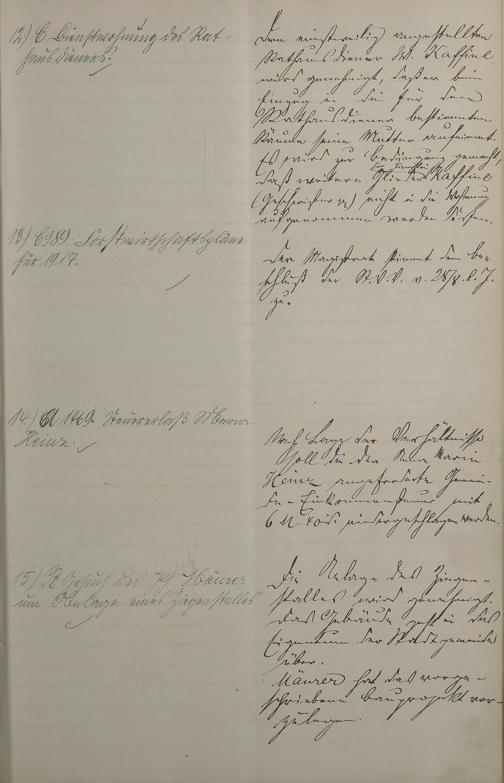 12.) C Dienstwohnung des Rat-
hausdieners.
Dem einstweilig angestellten
Rathausdiener W. Kaffine
wird genehmigt, daß er beim
Einzug in die für den
Rathausdiener bestimmten
Räume seine Mutter aufnimmt.
Es wird zur Bedingung gemacht,
daß weitere Glieder Kaffine
(Geschwister) nicht in die Wohnung
aufgenommen werden dürfen.
13.) C 989. Forstwirtschaftspläne
für 1917.
Der Magistrat stimmt dem Be-
schluß der St.V.V. v. 28/8. l. J.
zu.
14.) A 1469. Steuererlaß
Heinz.
Nach Lage der Verhältnisse
soll die der Anna Maria
Heinz angeforderte Gemein-
de-Einkommensteuer mit
6 M 40 niedergeschlagen werden.
15.) B Gesuch des Mäurer
um Anlage eines Ziegenstalles
Die Anlage des Ziegen-
stalles wird genehmigt.
Das Gebäude geht in das
Eigentum der Stadtgemeinde
über.
Mäurer hat das vorge-
schriebene Bauprojekt vor-
zulegen.